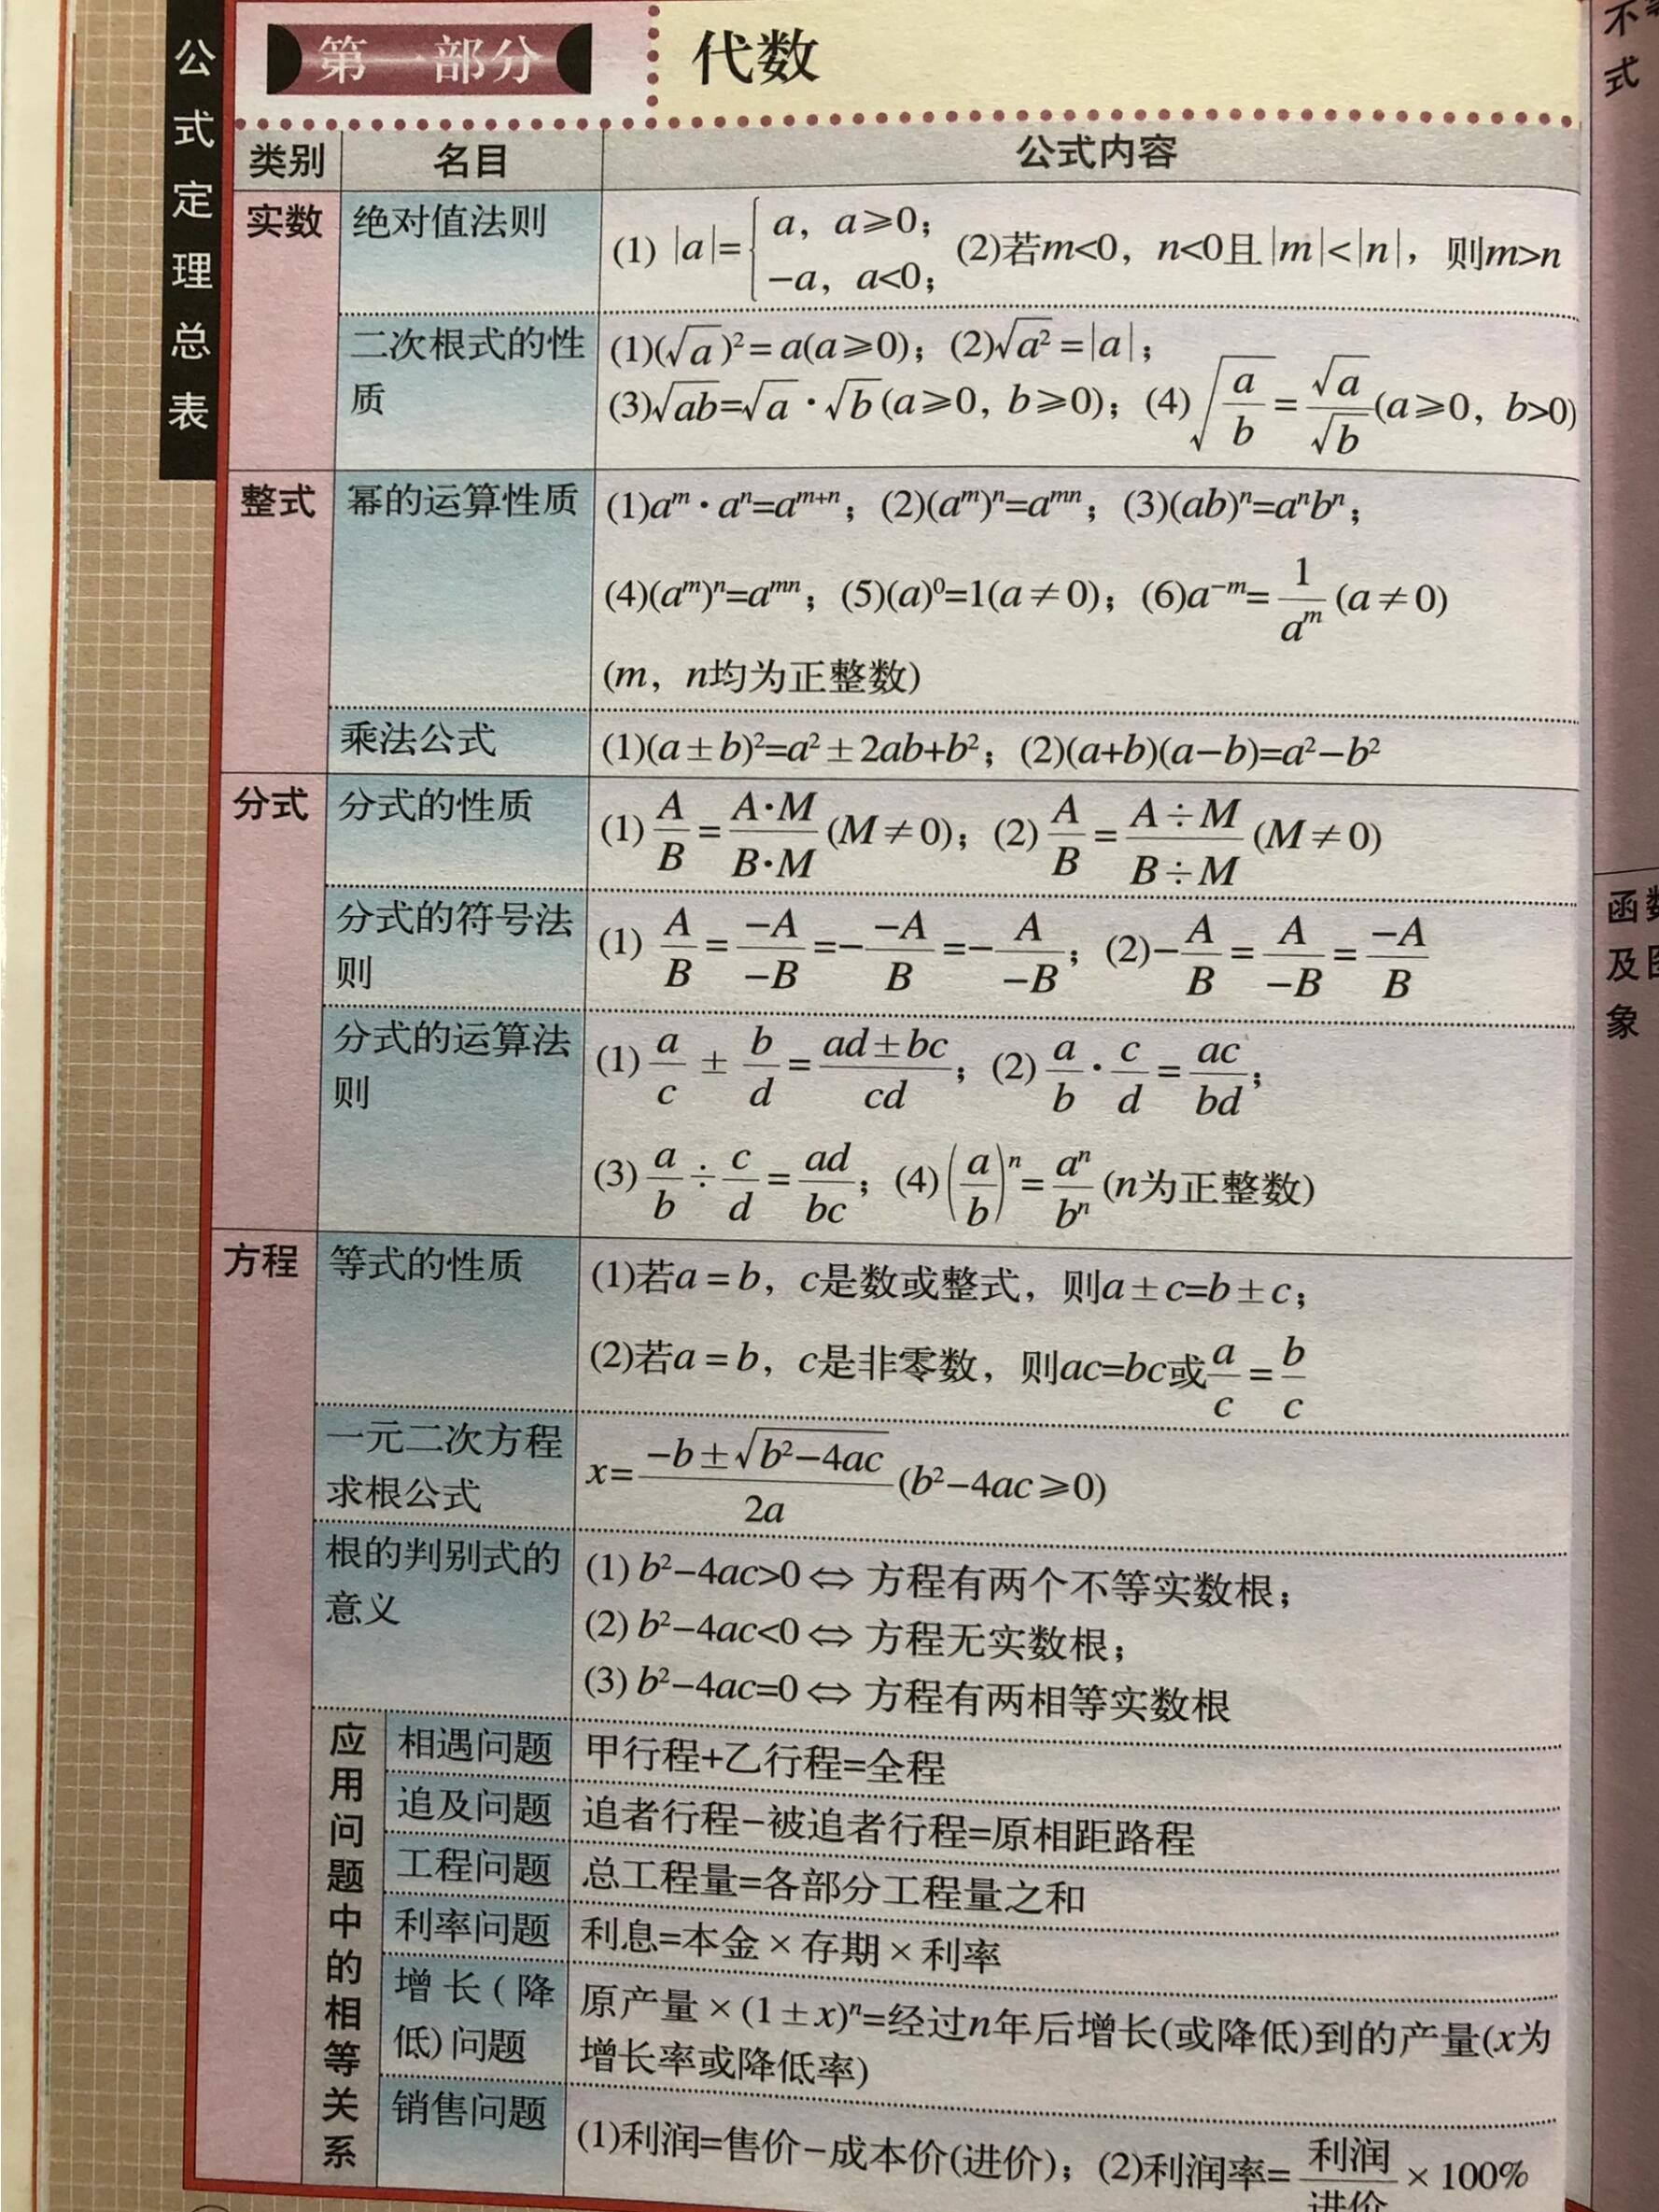 公式定理总表
第一部分 代数
类别 名目 公式内容
实数 绝对值法则 (1) |a|={a, a≥0; -a, a<0; (2)若m<0, n<0且|m|<|n|, 则m>n
二次根式的性质 (1)(√a)²=a(a≥0); (2)√a²=|a|;
(3)√ab=√a·√b(a≥0, b≥0); (4)√(a/b)=√a/√b(a≥0, b>0)
整式 幂的运算性质 (1)aᵐ·aⁿ=aᵐ⁺ⁿ; (2)(aᵐ)ⁿ=aᵐⁿ; (3)(ab)ⁿ=aⁿbⁿ;
(4)(aᵐ)ⁿ=aᵐⁿ; (5)(a)⁰=1(a≠0); (6)a⁻ᵐ=1/aᵐ(a≠0)
(m, n均为正整数)
乘法公式 (1)(a±b)²=a²±2ab+b²; (2)(a+b)(a−b)=a²−b²
分式 分式的性质 (1)A/B=A·M/B·M(M≠0); (2)A/B=A÷M/B÷M(M≠0)
分式的符号法则 (1) A/B=−A/−B=−−A/B=−A/−B; (2)−A/B=A/−B=−A/B
分式的运算法则 (1)a/c±b/d=ad±bc/cd; (2)a/b·c/d=ac/bd;
(3)a/b÷c/d=ad/bc; (4)(a/b)ⁿ=aⁿ/bⁿ(n为正整数)
方程 等式的性质 (1)若a=b, c是数或整式, 则a±c=b±c;
(2)若a=b, c是非零数, 则ac=bc或a/c=b/c
一元二次方程求根公式 x=−b±√b²−4ac/2a(b²−4ac≥0)
根的判别式的意义 (1) b²−4ac>0⇔方程有两个不等实数根;
(2) b²−4ac<0⇔方程无实数根;
(3) b²−4ac=0⇔方程有两相等实数根
应用问题中的相等关系
相遇问题 甲行程+乙行程=全程
追及问题 追者行程−被追者行程=原相距路程
工程问题 总工程量=各部分工程量之和
利率问题 利息=本金×存期×利率
增长(降低)问题 原产量×(1±x)ⁿ=经过n年后增长(或降低)到的产量(x为
增长率或降低率)
销售问题 (1)利润=售价−成本价(进价); (2)利润率=利润/进价×100%
式
函
及
象